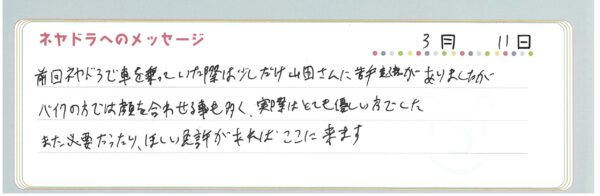 ネヤドラへのメッセージ
3月 11日
前回ネヤドラで車を乗っていた際は少しだけ山田さんに苦手意識がありましたが
バイクの方では顔を合わせる事も多く、実際はとても優しい方でした
また必要だったり、ほしい免許があれば ここに来ます